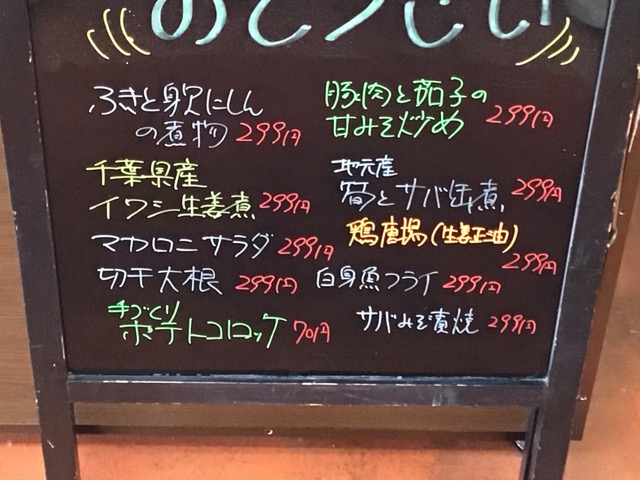 おとうさい
ふきと身欠にしん
の煮物 299円
千葉県産
イワシ生姜煮 299円
マカロニサラダ 299円
切干大根 299円
手づくり
ポテトコロッケ 70円
豚肉と茄子の
甘みそ炒め 299円
地元産
筍とサバ缶煮 299円
鶏唐揚(生姜正油)
299円
白身魚フライ 299円
サバみそ漬焼 299円